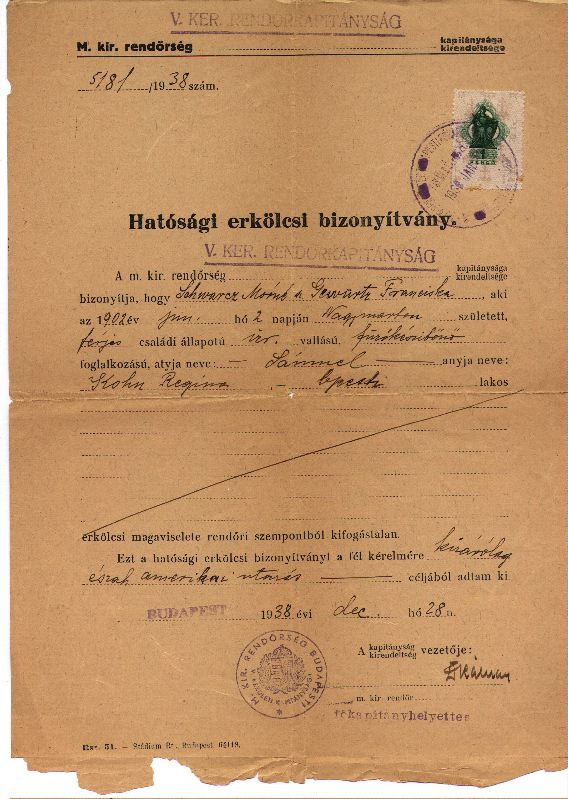 V. KER. RENDŐRKAPITÁNYSÁG
M. kir. rendőrség kapitánysága
kirendeltsége
5181/1938 szám.
1
PENGŐ
Hatósági erkölcsi bizonyítvány.
V. KER. RENDŐRKAPITÁNYSÁG
A m. kir. rendőrség kapitánysága
kirendeltsége
bizonyítja, hogy Schwarcz Mórné Franciska, aki
az 1902 év jun. hó 2 napján Nagymarton született,
férjes családi állapotú izr. vallású,
foglalkozású, atyja neve: — Sámuel — anyja neve:
Kohn Regina, – bpesti lakos
erkölcsi magaviselete rendőri szempontból kifogástalan.
Ezt a hatósági erkölcsi bizonyítványt a fél kérelmére kizárólag
észak amerikai utazás — céljából adtam ki
BUDAPEST 1938 évi dec. hó 28 n.
A kapitányság
kirendeltség vezetője:
M. KIR. RENDŐRSÉG BUDAPESTI
m. kir. rendőr
főkapitányhelyettes
Rsz. 51. — Stádium Rt., Budapest 62118.